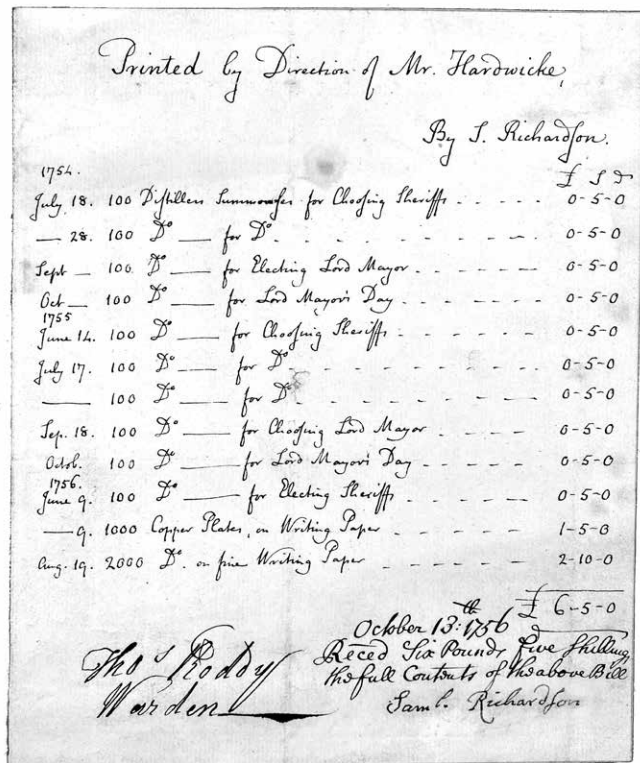 Printed by Direction of Mr. Hardwicke,
By S. Richardson.
1754.
£ S D
July 18. 100 Distillers Summonses for Choosing Sheriffs - - - - 0-5-0
— 28. 100 Do — for Do - - - - - - - 0-5-0
Sept — 100 Do — for Electing Lord Mayor - - - - 0-5-0
Oct — 100 Do — for Lord Mayor's Day - - - - - 0-5-0
1755
June 14. 100 Do — for Choosing Sheriffs - - - - - 0-5-0
July 17. 100 Do — for Do - - - - - - - 0-5-0
— 100 Do — for Do - - - - - - - 0-5-0
Sep. 18. 100 Do — for Choosing Lord Mayor - - - - 0-5-0
Octob. 100 Do — for Lord Mayor's Day - - - - 0-5-0
1756.
June 9. 100 Do — for Electing Sheriffs - - - - - 0-5-0
— 9. 1000 Copper Plates, on Writing Paper - - - - - 1-5-0
Aug. 19. 2000 Do. on fine Writing Paper - - - - - - 2-10-0
£ 6-5-0
October 13:th 1756
Reced Six Pounds five Shillings
the full Contents of the above Bill
Saml. Richardson
Thos Roddy
Warden